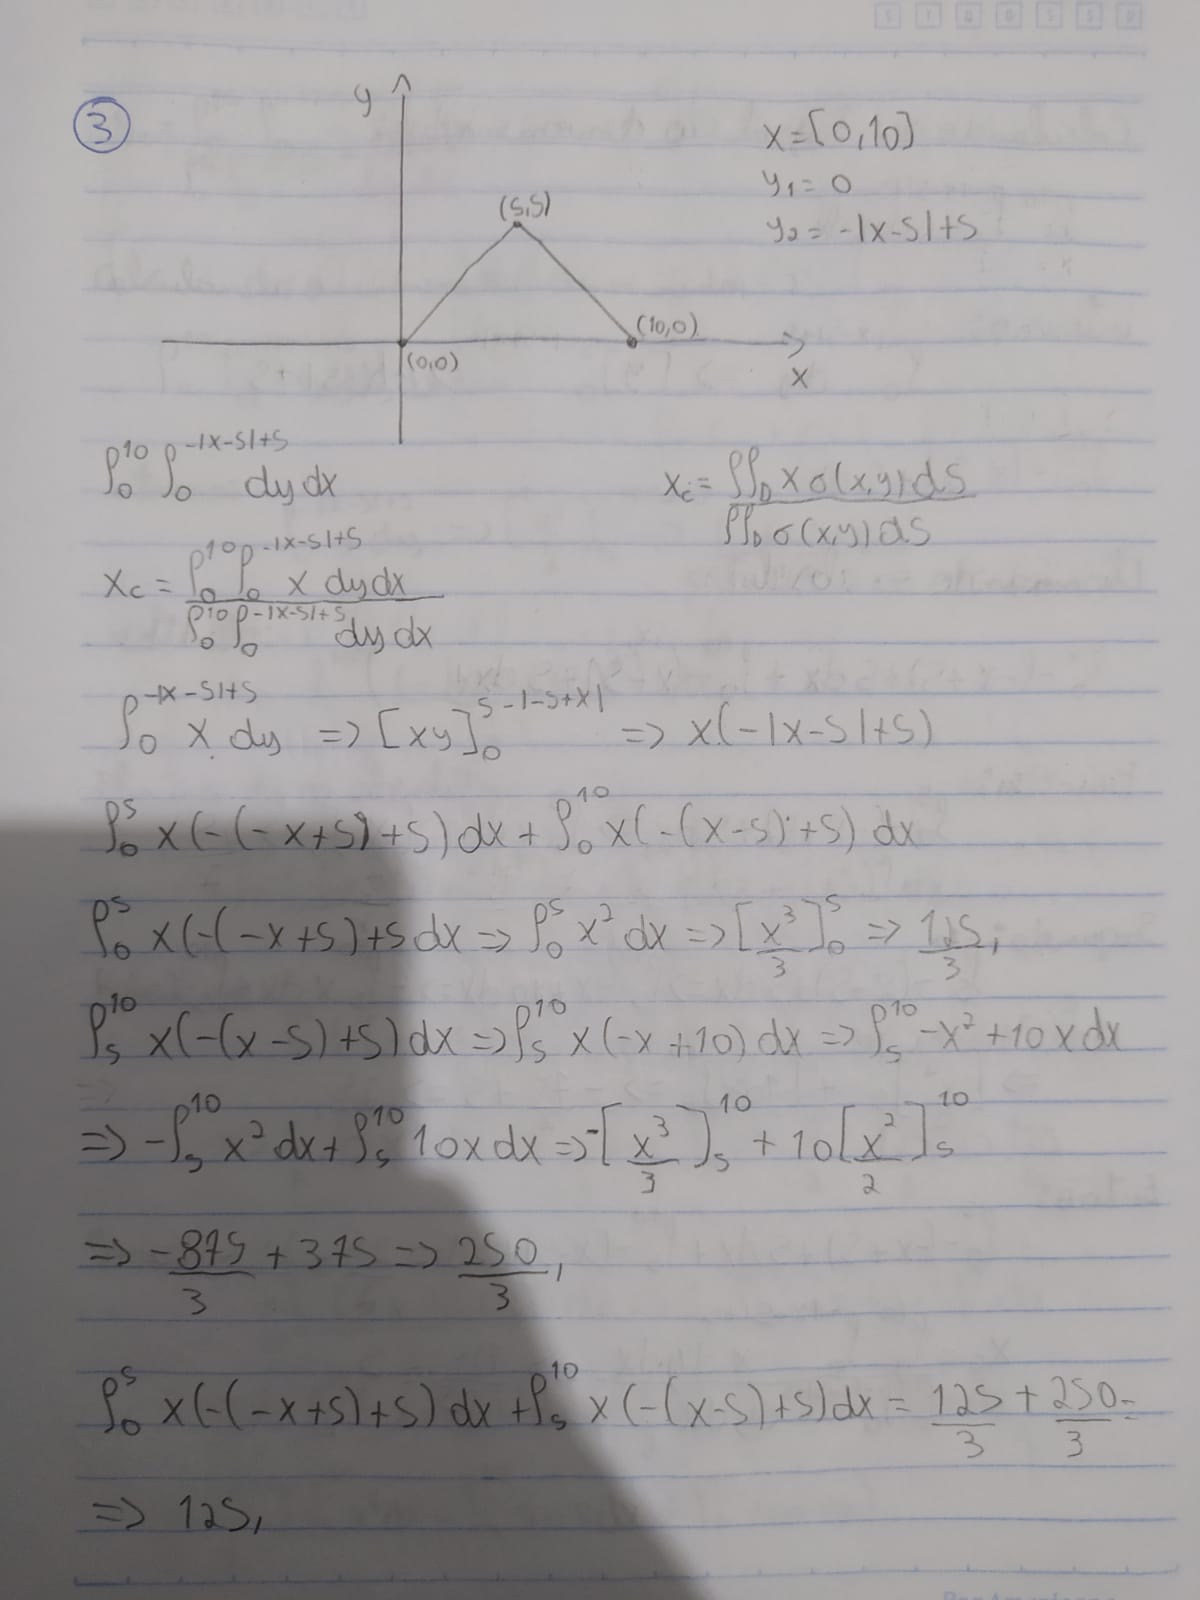 3
y
x=[0,10]
y₁=0
y₂=-|x-5|+5
(5,5)
(10,0)
(0,0)
x
∫₀¹⁰ ∫₀^(-|x-5|+5) dy dx
x_c = ∬_D x σ(x,y) dS / ∬_D σ(x,y) dS
x_c = ∫₀¹⁰ ∫₀^(-|x-5|+5) x dy dx / ∫₀¹⁰ ∫₀^(-|x-5|+5) dy dx
∫₀^(-|x-5|+5) x dy => [xy]₀^(5-|-5+x|) => x(-|x-5|+5)
∫₀⁵ x(-(-x+5)+5) dx + ∫₀¹⁰ x(-(x-5)+5) dx
∫₀⁵ x(-(-x+5)+5 dx => ∫₀⁵ x² dx => [x³/3]₀⁵ => 125/3,
∫₅¹⁰ x(-(x-5)+5) dx => ∫₅¹⁰ x(-x+10) dx => ∫₅¹⁰ -x²+10x dx
=> -∫₅¹⁰ x² dx + ∫₅¹⁰ 10x dx => -[x³/3]₅¹⁰ + 10[x²/2]₅¹⁰
=> -875/3 + 375 => 250/3,
∫₀⁵ x(-(-x+5)+5) dx + ∫₅¹⁰ x(-(x-5)+5) dx = 125/3 + 250/3 =
=> 125,